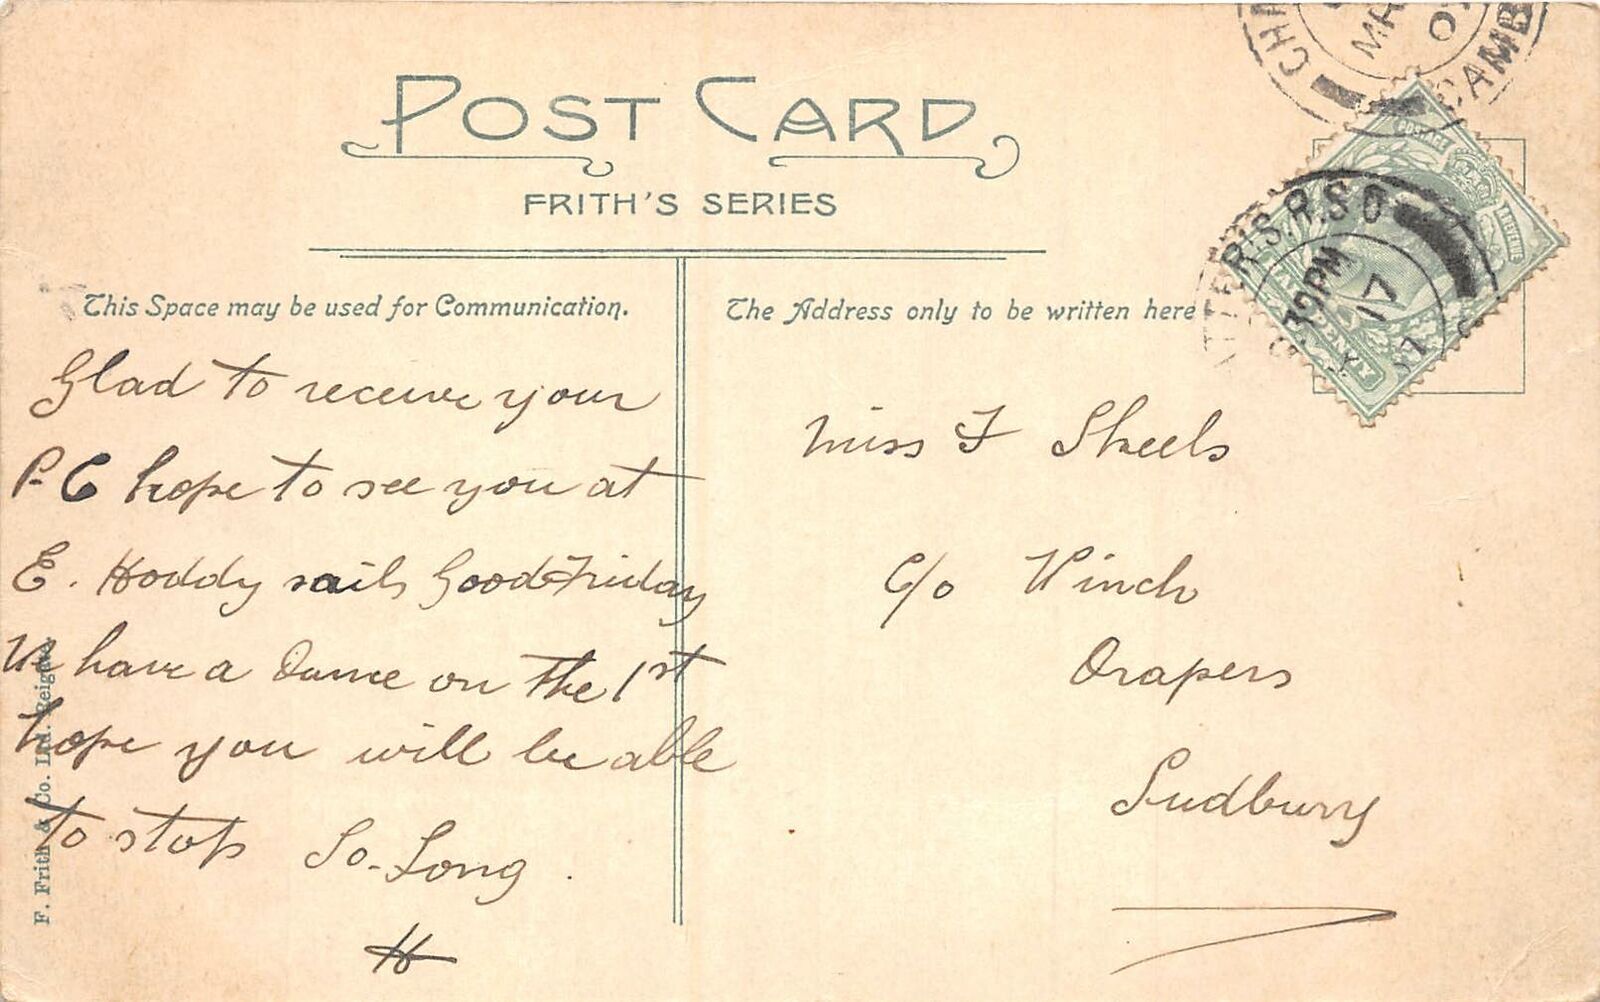 POST CARD
FRITH'S SERIES
This Space may be used for Communication.
The Address only to be written here
Glad to receive your
P-C hope to see you at
E. Hoddy sails Good Friday
We have a Dance on the 1st
hope you will be able
to stop So-Long.
H
Miss F Skeels
C/o Winch
Drapers
Sudbury
F. Frith & Co. Ltd. Reigate.
MR
CAMB
R.S.O
PM
17
POSTAGE
REVENUE